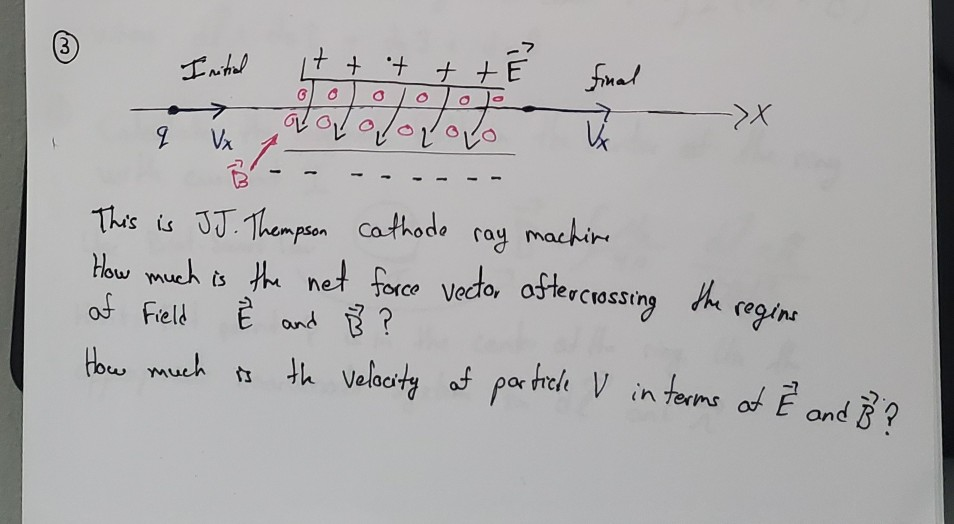 3
Initial + + + + + E final
q Vx Vx X
B - - - - - - - -
This is JJ. Thompson cathode ray machine
How much is the net force vector aftercrossing the regins
of Field E and B ?
How much is th velocity of particle V in terms of E and B ?